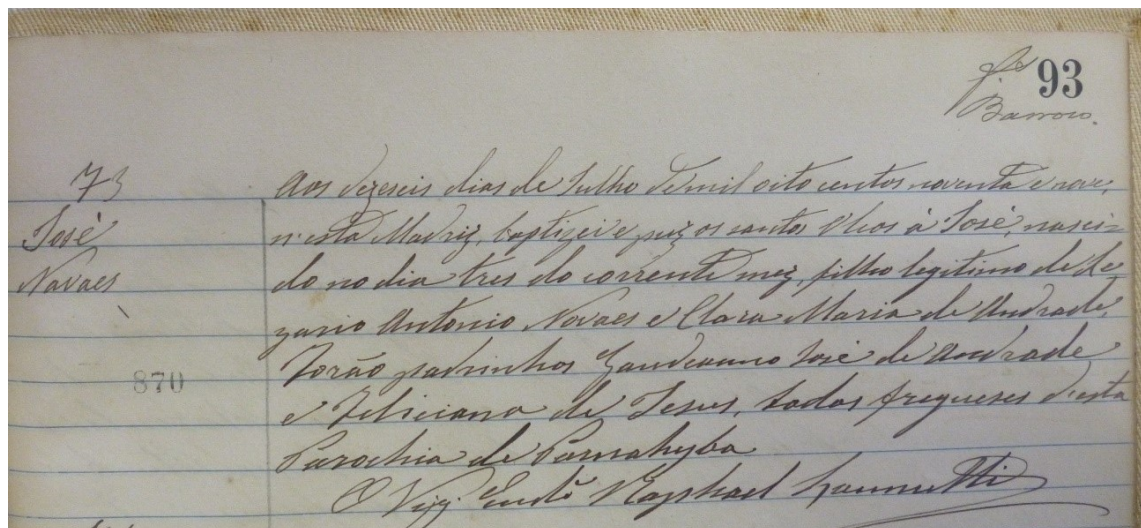 93
Barroco.
73
Aos dezeseis dias de Julho de mil oito centos noventa e nove,
José
n'esta Matriz, baptizei e puz os santos Oleos à José, nasci-
Novaes
do no dia tres do corrente mez, filho legitimo de
zario Antonio Novaes e Clara Maria de Andrade,
870
Forão padrinhos José de Andrade
e Feliciana de Jesus, todos freguezes d'esta
Parochia de Parnahyba
O Vigº Raphael